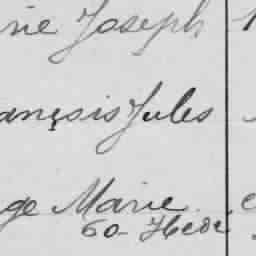 rie Joseph
ançois Jules
ge Marie
60- Hede